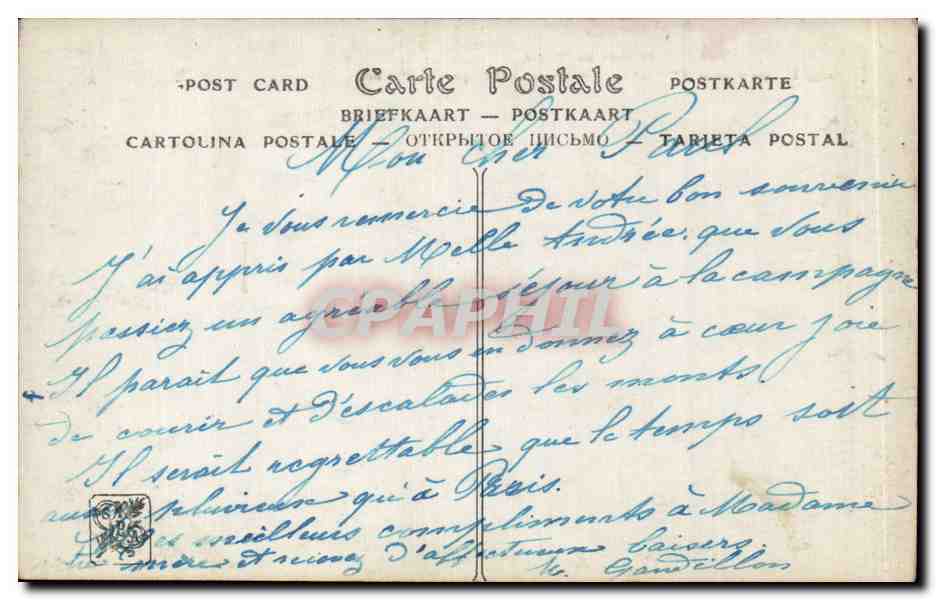 POST CARD Carte Postale POSTKARTE
BRIEFKAART — POSTKAART
CARTOLINA POSTALE — ОТКРЫТОЕ ПИСЬМО — TARJETA POSTAL
Mon cher Paul
Je vous remercie de votre bon souvenir
J'ai appris par Melle Andrée, que vous
passiez un agréable séjour à la campagne
Il parait que vous vous en donnez à cœur joie
de courir et d'escalader les monts.
Il serait regrettable que le temps soit
aussi pluvieux qu'à Paris.
meilleurs compliments à Madame
mère et recevez d'affectueux baisers.
Gandillon
CPAPHIL